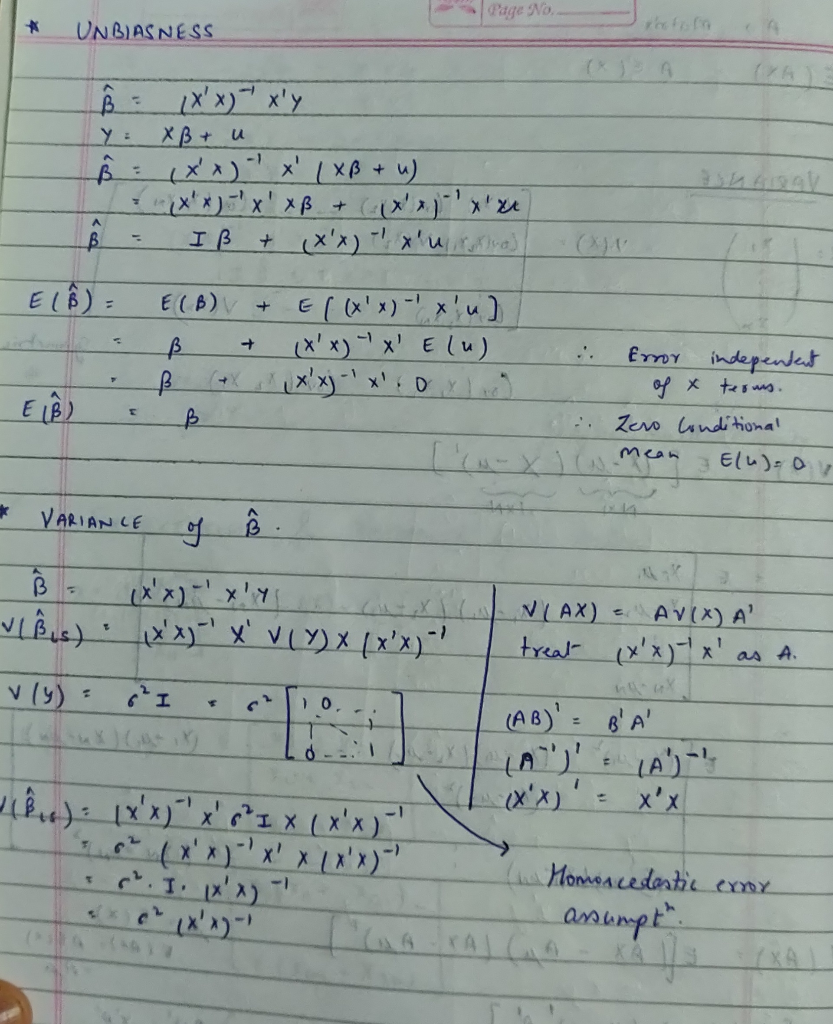 Page No.
* UNBIASNESS
β̂ = (X'X)⁻¹ X'Y
Y = Xβ + u
β̂ = (X'X)⁻¹ X' (Xβ + u)
= (X'X)⁻¹ X' Xβ + (X'X)⁻¹ X'u
β̂ = Iβ + (X'X)⁻¹ X'u
E(β̂) = E(β) + E[(X'X)⁻¹ X'u]
= β + (X'X)⁻¹ X' E(u) ∴ Error independent
of X terms.
= β + (X'X)⁻¹ X' . 0
E(β̂) = β ∴ Zero Conditional
Mean E(u) = 0
* VARIANCE of β̂.
β̂ = (X'X)⁻¹ X'Y
V(β̂LS) = (X'X)⁻¹ X' V(Y) X (X'X)⁻¹
V(y) = σ² I = σ² [1 0 . - .
0 - - . 1]
V(AX) = A V(X) A'
treat (X'X)⁻¹ X' as A.
(AB)' = B'A'
(A⁻¹)' = (A')⁻¹
(X'X)' = X'X
V(β̂LS) = (X'X)⁻¹ X' σ² I X (X'X)⁻¹
= σ² (X'X)⁻¹ X' X (X'X)⁻¹
= σ² . I . (X'X)⁻¹
= σ² (X'X)⁻¹
Homoscedastic error
assumptⁿ.